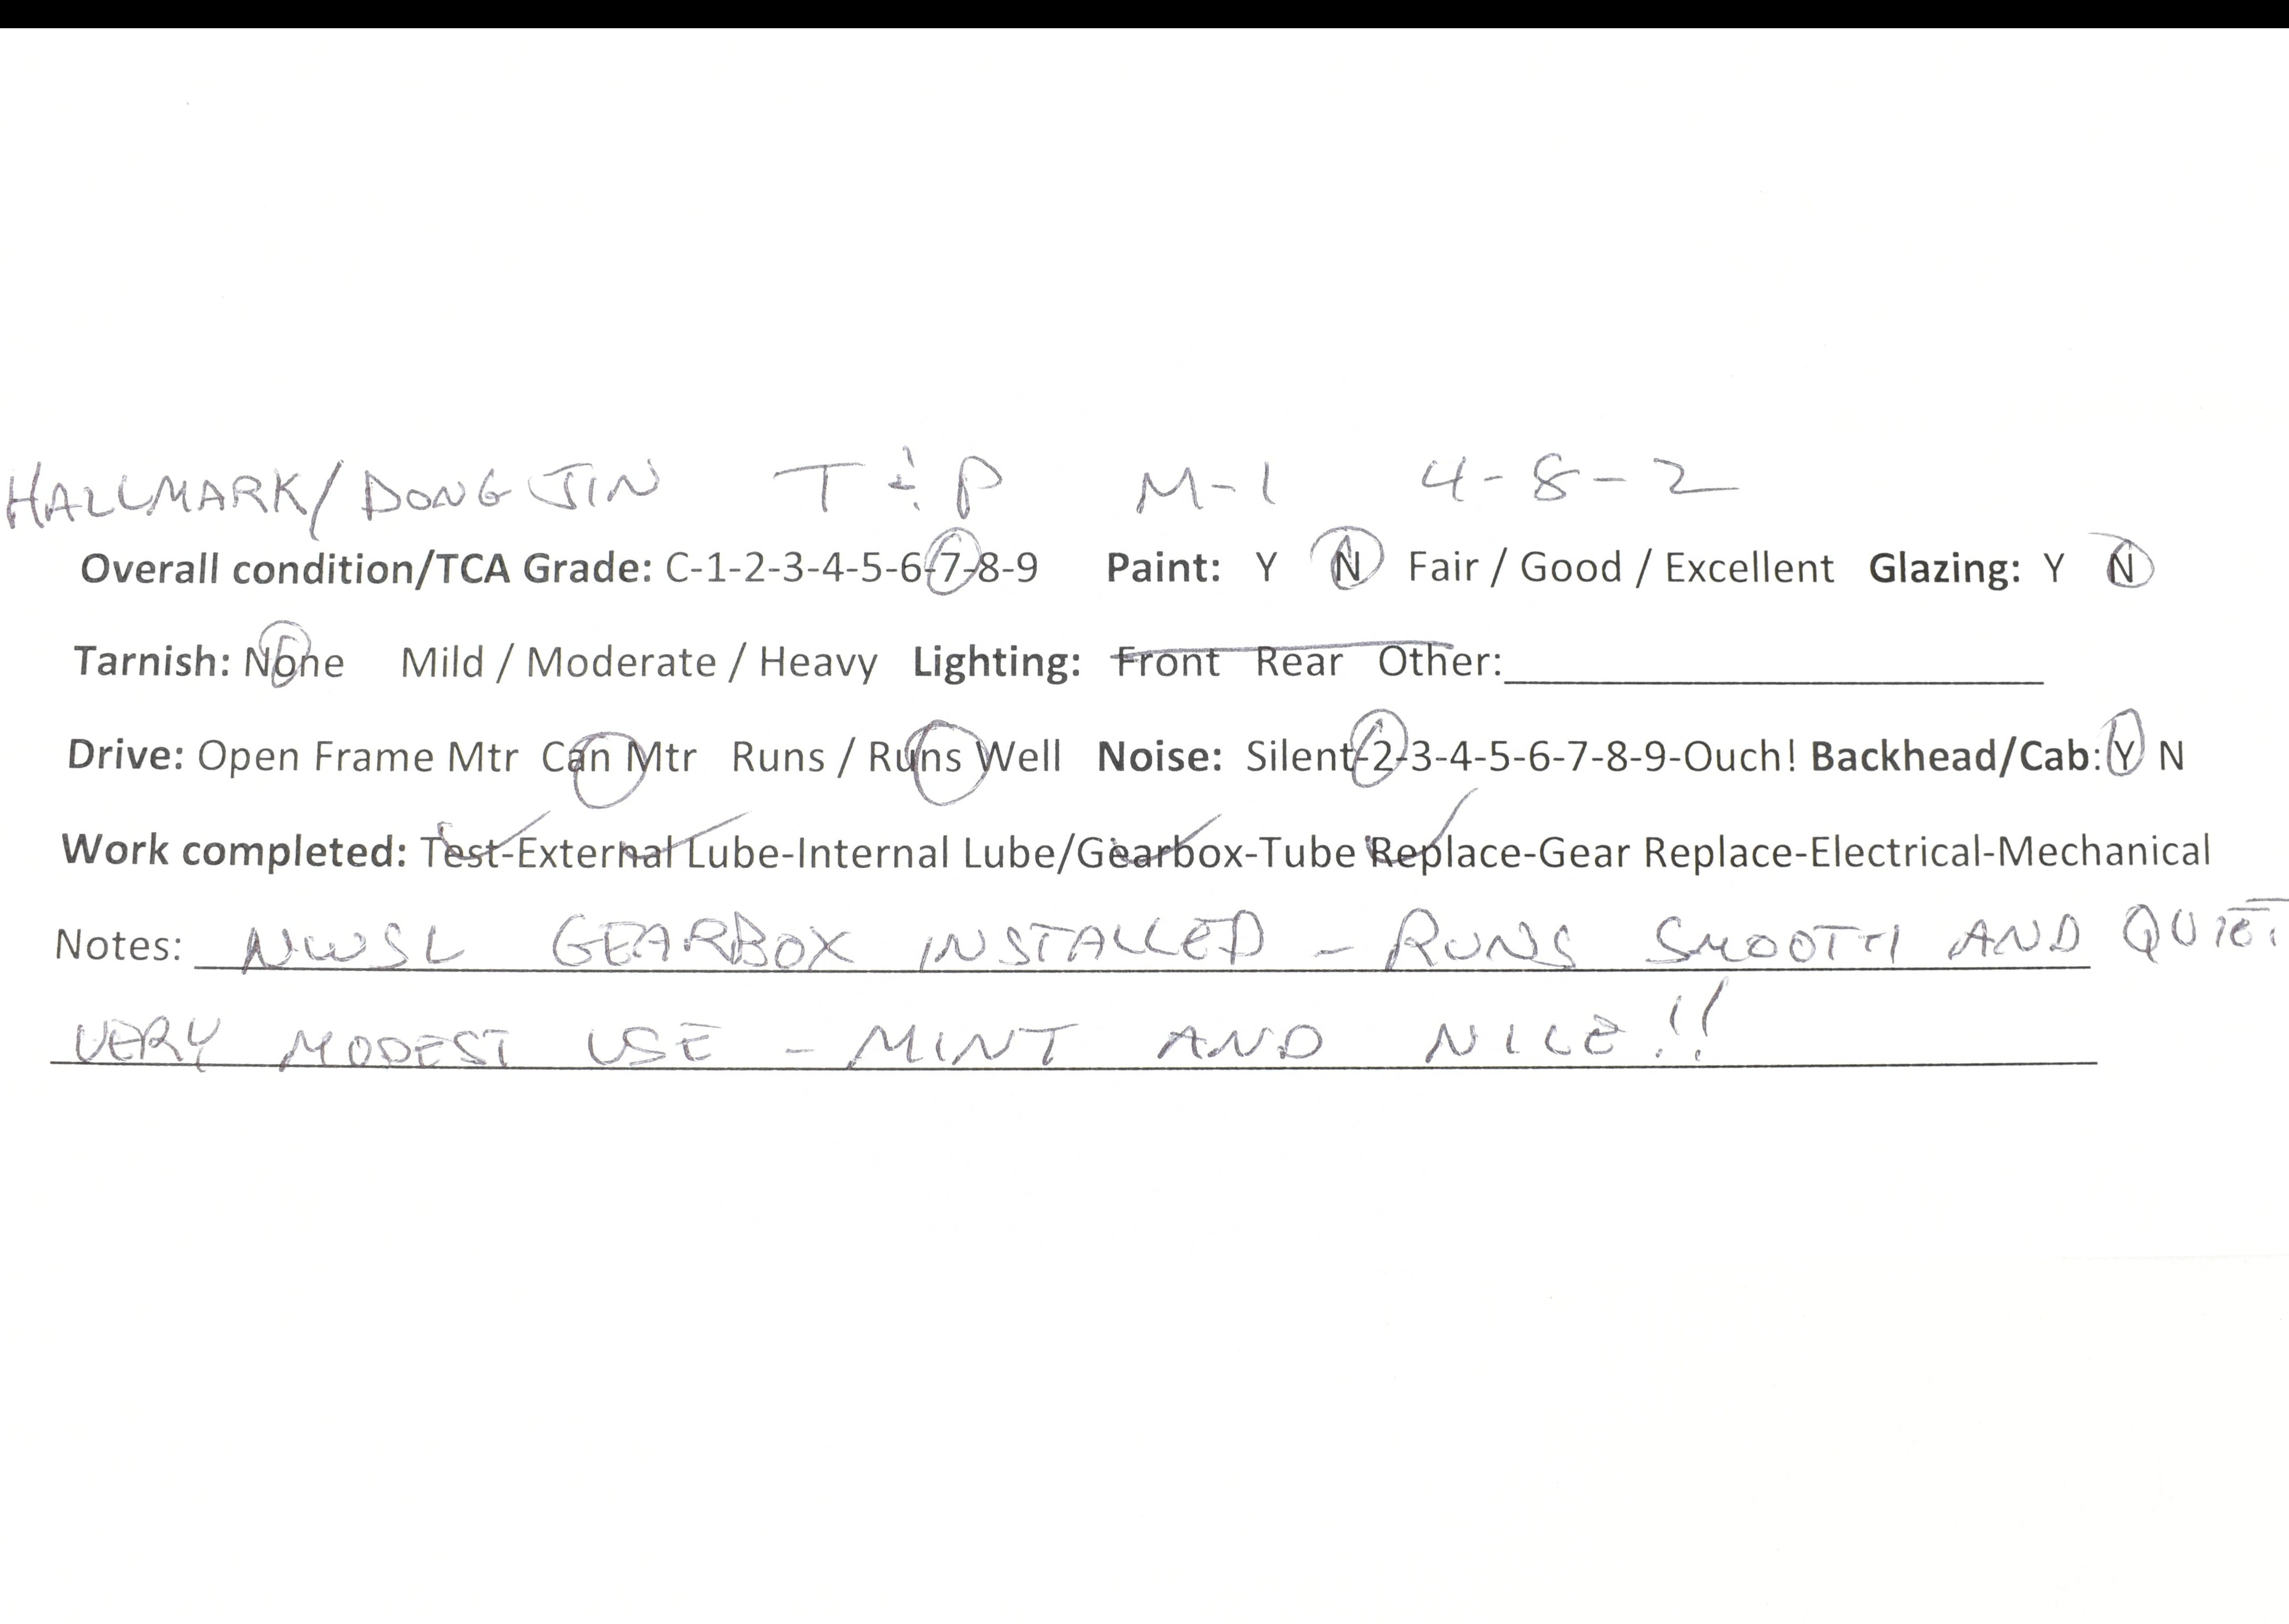 HALLMARK/DONG JIN T & P M-1 4-8-2
Overall condition/TCA Grade: C-1-2-3-4-5-6-7-8-9 Paint: Y N Fair / Good / Excellent Glazing: Y N
Tarnish: None Mild / Moderate / Heavy Lighting: Front Rear Other:
Drive: Open Frame Mtr Can Mtr Runs / Runs Well Noise: Silent-2-3-4-5-6-7-8-9-Ouch! Backhead/Cab: Y N
Work completed: Test-External Lube-Internal Lube/Gearbox-Tube Replace-Gear Replace-Electrical-Mechanical
Notes: NWSL GEARBOX INSTALLED - RUNS SMOOTH AND QUIET
VERY MODEST USE - MINT AND NICE!!